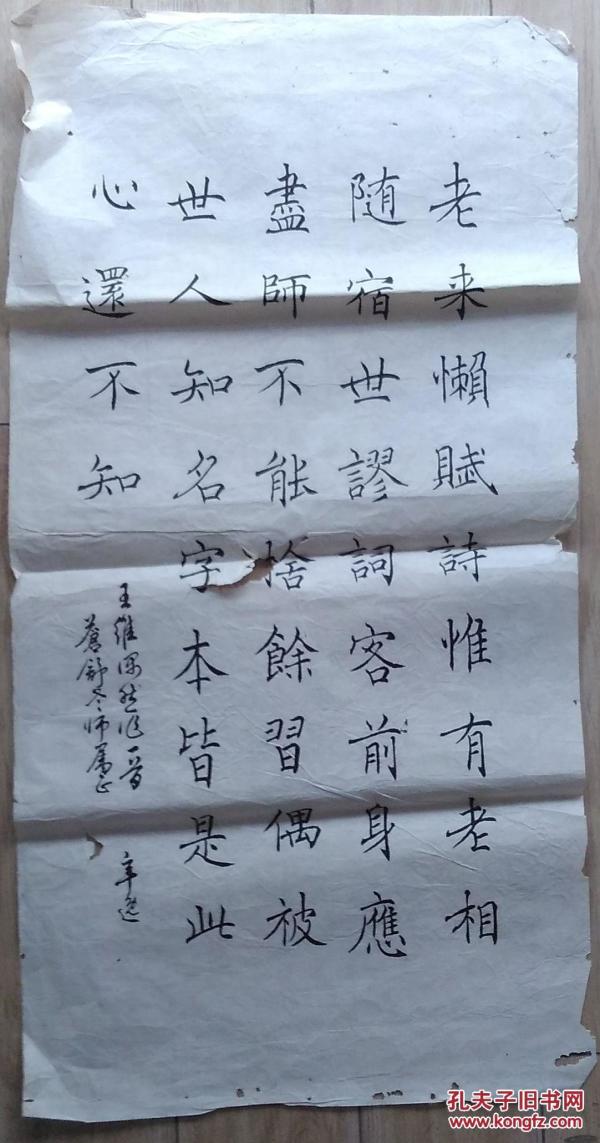 老来懶賦詩惟有老相
随宿世謬詞客前身應
盡師不能捨餘習偶被
世人知名字本皆是此
心還不知
王維偶然作一首
蒼舒老师属正
辛逸
孔夫子旧书网
www.kongfz.com